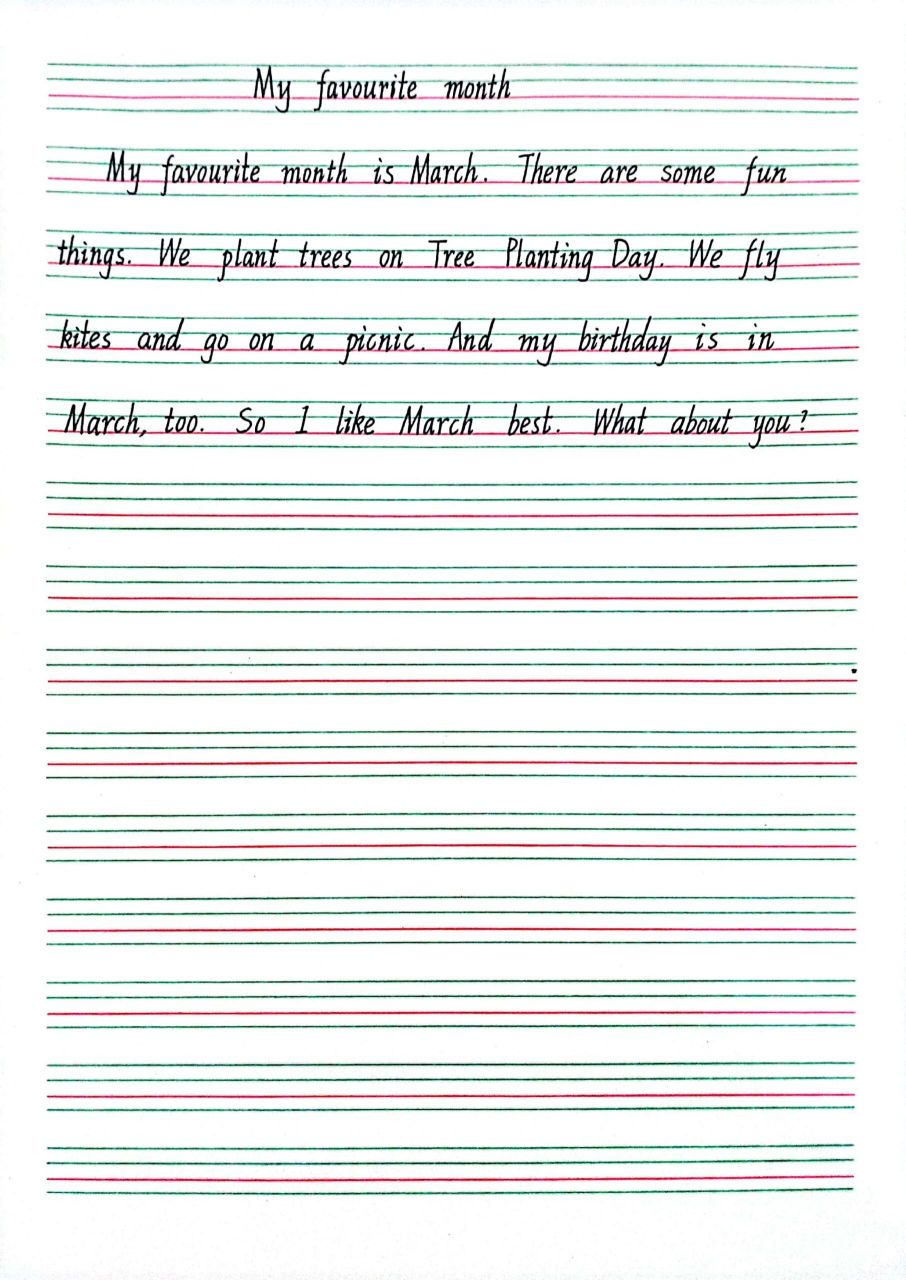 My favourite month
My favourite month is March. There are some fun
things. We plant trees on Tree Planting Day. We fly
kites and go on a picnic. And my birthday is in
March, too. So I like March best. What about you?